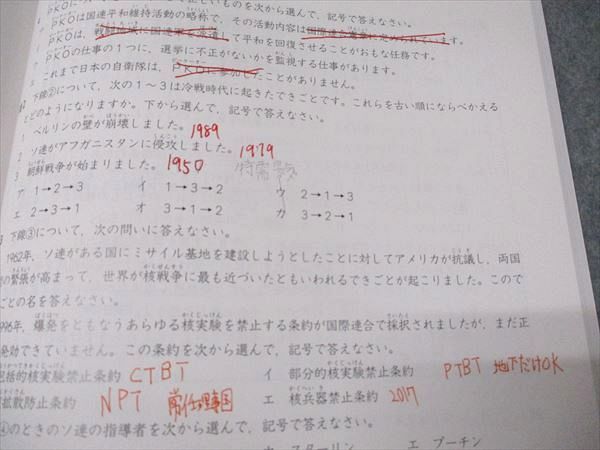 正しいものを次から選んで、記号で答えなさい。
PKOは国連平和維持活動の略称で、その活動内容は国際連合憲章に定められています。
PKOは、戦闘地域に国連軍を派遣して平和を回復させることがおもな任務です。
PKOの仕事の1つに、選挙に不正がないかを監視する仕事があります。
エ これまで日本の自衛隊は、PKOに参加したことがありません。
下線②について、次の1～3は冷戦時代に起きたできごとです。これらを古い順にならべかえる
とどのようになりますか。下から選んで、記号で答えなさい。
1 ベルリンの壁が崩壊しました。 1989
2 ソ連がアフガニスタンに侵攻しました。 1979
3 朝鮮戦争が始まりました。 1950 特需景気
ア 1→2→3 イ 1→3→2 ウ 2→1→3
エ 2→3→1 オ 3→1→2 カ 3→2→1
下線③について、次の問いに答えなさい。
1962年、ソ連がある国にミサイル基地を建設しようとしたことに対してアメリカが抗議し、両国
の緊張が高まって、世界が核戦争に最も近づいたともいわれるできごとが起こりました。こので
ごとの名を答えなさい。
996年、爆発をともなうあらゆる核実験を禁止する条約が国際連合で採択されましたが、まだ正
発効できていません。この条約を次から選んで、記号で答えなさい。
包括的核実験禁止条約 CTBT イ 部分的核実験禁止条約 PTBT 地下だけOK
拡散防止条約 NPT 常任理事国 エ 核兵器禁止条約 2017
④のときのソ連の指導者を次から選んで、記号で答えなさい。
スターリン エ プーチン